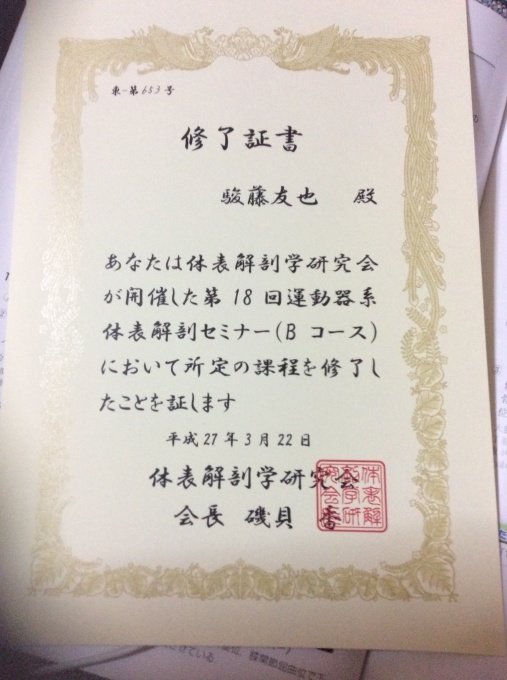 東-第683号
修了証書
駿藤友也 殿
あなたは体表解剖学研究会
が開催した第18回運動器系
体表解剖セミナー(Bコース)
において所定の課程を修了し
たことを証します
平成27年3月22日
体表解剖学研究会
会長 磯貝 香
体表解
剖学研
究会印